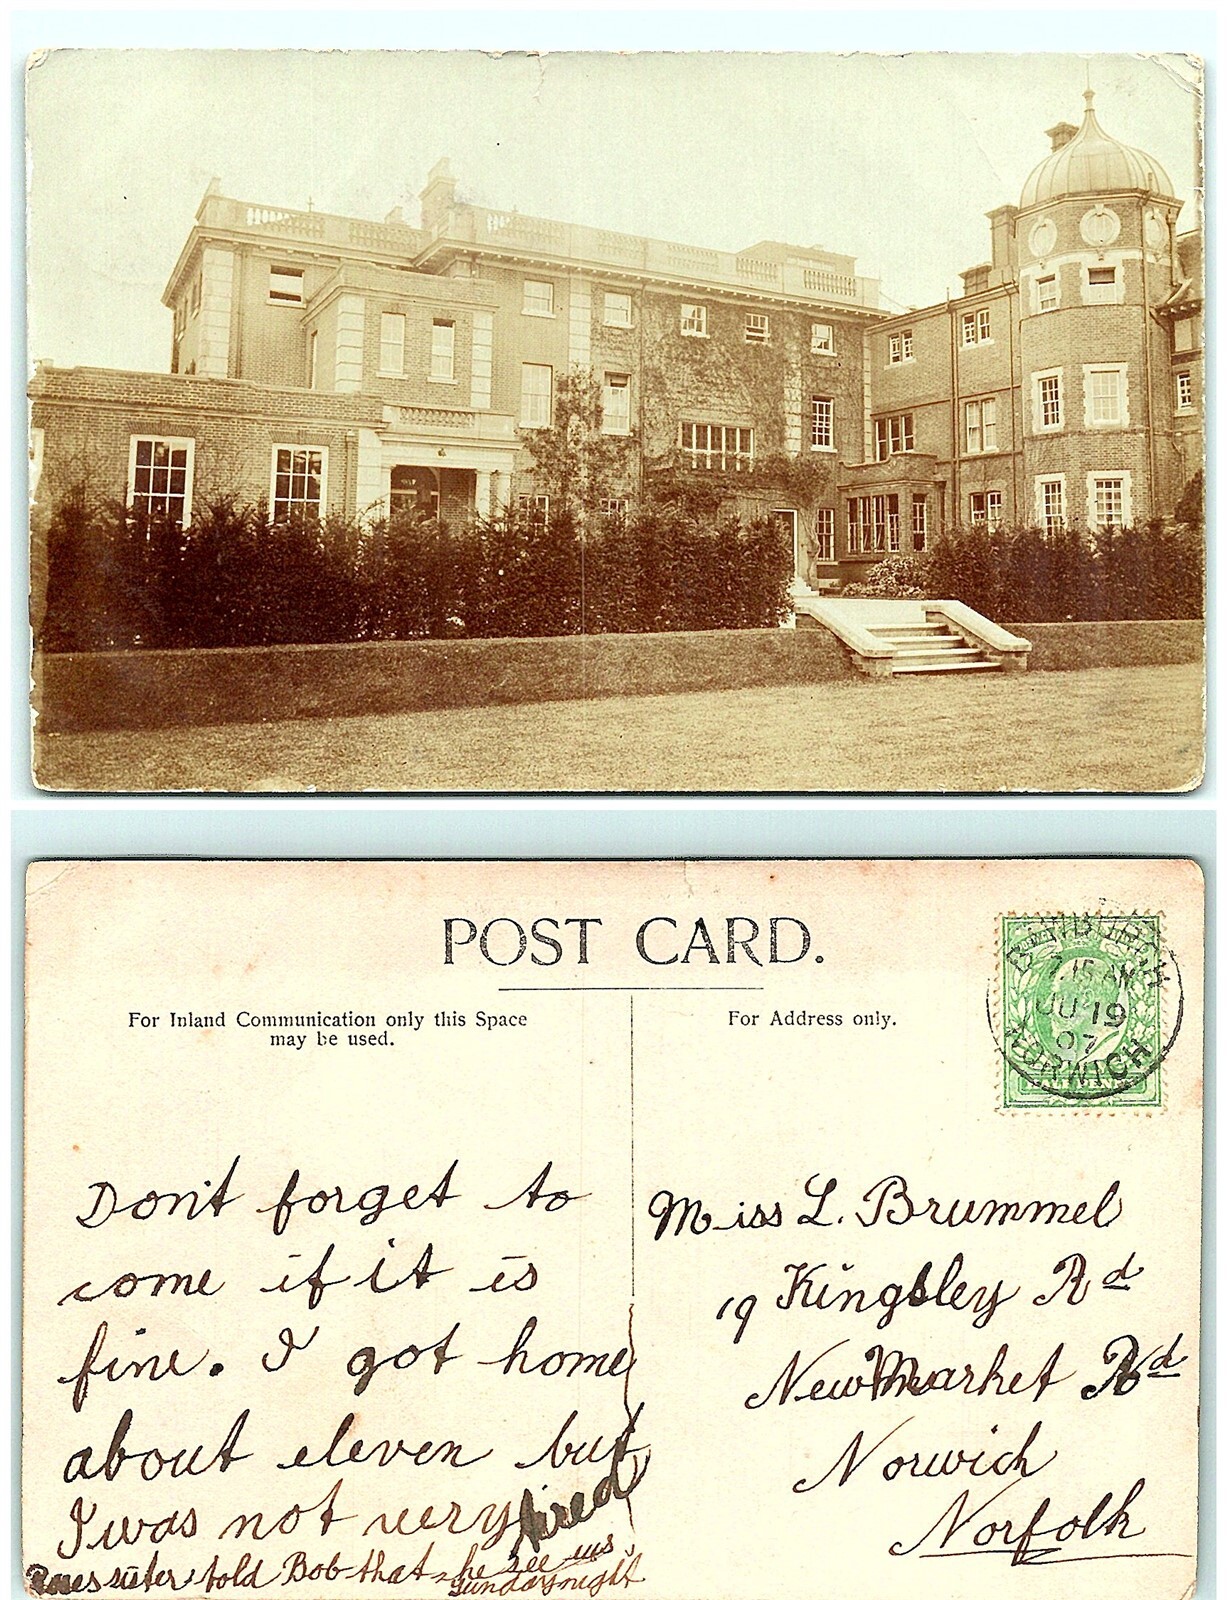 POST CARD.
For Inland Communication only this Space
may be used.
For Address only.
7.15 AM
JU 19
07
NORWICH
HALF PENNY
Don't forget to
come if it is
fine. I got home
about eleven but
I was not very tired
sister told Bob that he see us
sunday night
Miss L. Brummel
19 Kingsley Rd
NewMarket Rd
Norwich
Norfolk